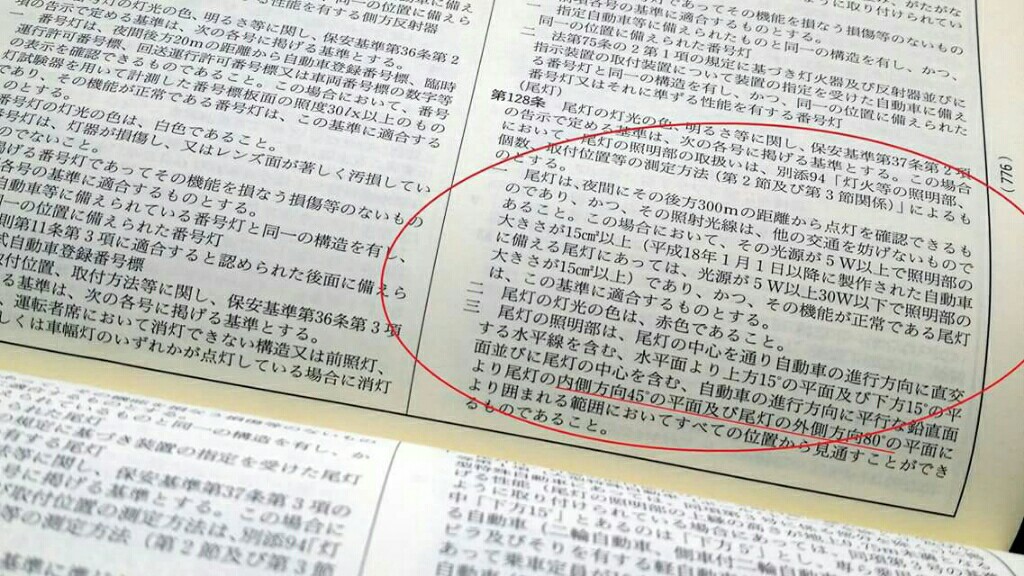 項の告示で定める基準は、次の各号に掲げる基準とする。
番号灯の灯光の色、明るさ等に関し、保安基準第36条第2
番号灯は、夜間後方20mの距離から自動車登録番号標、臨時
運行許可番号標、回送運行許可番号標又は車両番号標の数字等
の表示を確認できるものであること。この場合において、番号
灯試験器を用いて計測した番号標板面の照度30lx以上のもの
であり、その機能が正常である番号灯は、この基準に適合する
ものとする。
番号灯の灯光の色は、白色であること。
号灯は、灯器が損傷し、又はレンズ面が著しく汚損してい
のでないこと。
掲げる番号灯であってその機能を損なう損傷等のないもの
各号の基準に適合するものとする。
自動車等に備えられている番号灯と同一の構造を有し、
同一の位置に備えられた番号灯
則第11条第3項に適合すると認められた後面に備えら
式自動車登録番号標
取付位置、取付方法等に関し、保安基準第36条第3項
る基準は、次の各号に掲げる基準とする。
、運転者席において消灯できない構造又は前照灯、
しくは車幅灯のいずれかが点灯している場合に消灯
であってその機能を損なう損傷等のないもの
前項各号に掲げる基準に適合するものとする。
一 指定自動車等に備えられたものと同一の構造を有し、かつ、
同一の位置に備えられた番号灯
二 法第75条の2第1項の規定に基づき灯火器及び反射器並びに
指示装置の取付装置について装置の指定を受けた自動車に備え
る番号灯と同一の構造を有し、かつ、同一の位置に備えられた
番号灯又はそれに準ずる性能を有する番号灯
(尾灯)
第128条 尾灯の灯光の色、明るさ等に関し、保安基準第37条第2項
の告示で定める基準は、次の各号に掲げる基準とする。この場合
において、尾灯の照明部の取扱いは、別添94「灯火等の照明部、
個数、取付位置等の測定方法(第2節及び第3節関係)」によるも
のとする。
一 尾灯は、夜間にその後方300mの距離から点灯を確認できるも
のであり、かつ、その照射光線は、他の交通を妨げないもので
あること。この場合において、その光源が5W以上で照明部の
大きさが15㎠以上(平成18年1月1日以降に製作された自動車
に備える尾灯にあっては、光源が5W以上30W以下で照明部の
大きさが15㎠以上)であり、かつ、その機能が正常である尾灯
は、この基準に適合するものとする。
二 尾灯の灯光の色は、赤色であること。
三 尾灯の照明部は、尾灯の中心を通り自動車の進行方向に直交
する水平線を含む、水平面より上方15°の平面及び下方15°の平
面並びに尾灯の中心を含む、自動車の進行方向に平行な鉛直面
より尾灯の内側方向45°の平面及び尾灯の外側方向80°の平面に
より囲まれる範囲においてすべての位置から見通すことができ
るものであること。
(776)
ものと同一の構造を有し、か
規定に基づき装置の指定を受けた尾灯
等に関し、保安基準第37条第3項の
に掲げる基準とする。この場合に
取付位置の測定方法は、別添94「灯
等の測定方法(第2節及び第3節
に取り付けられている場合にあっては、同
中「下方15°」とあるのは「下方5°」とし、専ら乗用
る自動車(二輪自動車、側車付二輪自動
ピラ及びそりを有する軽自動車
あって乗車定員が10